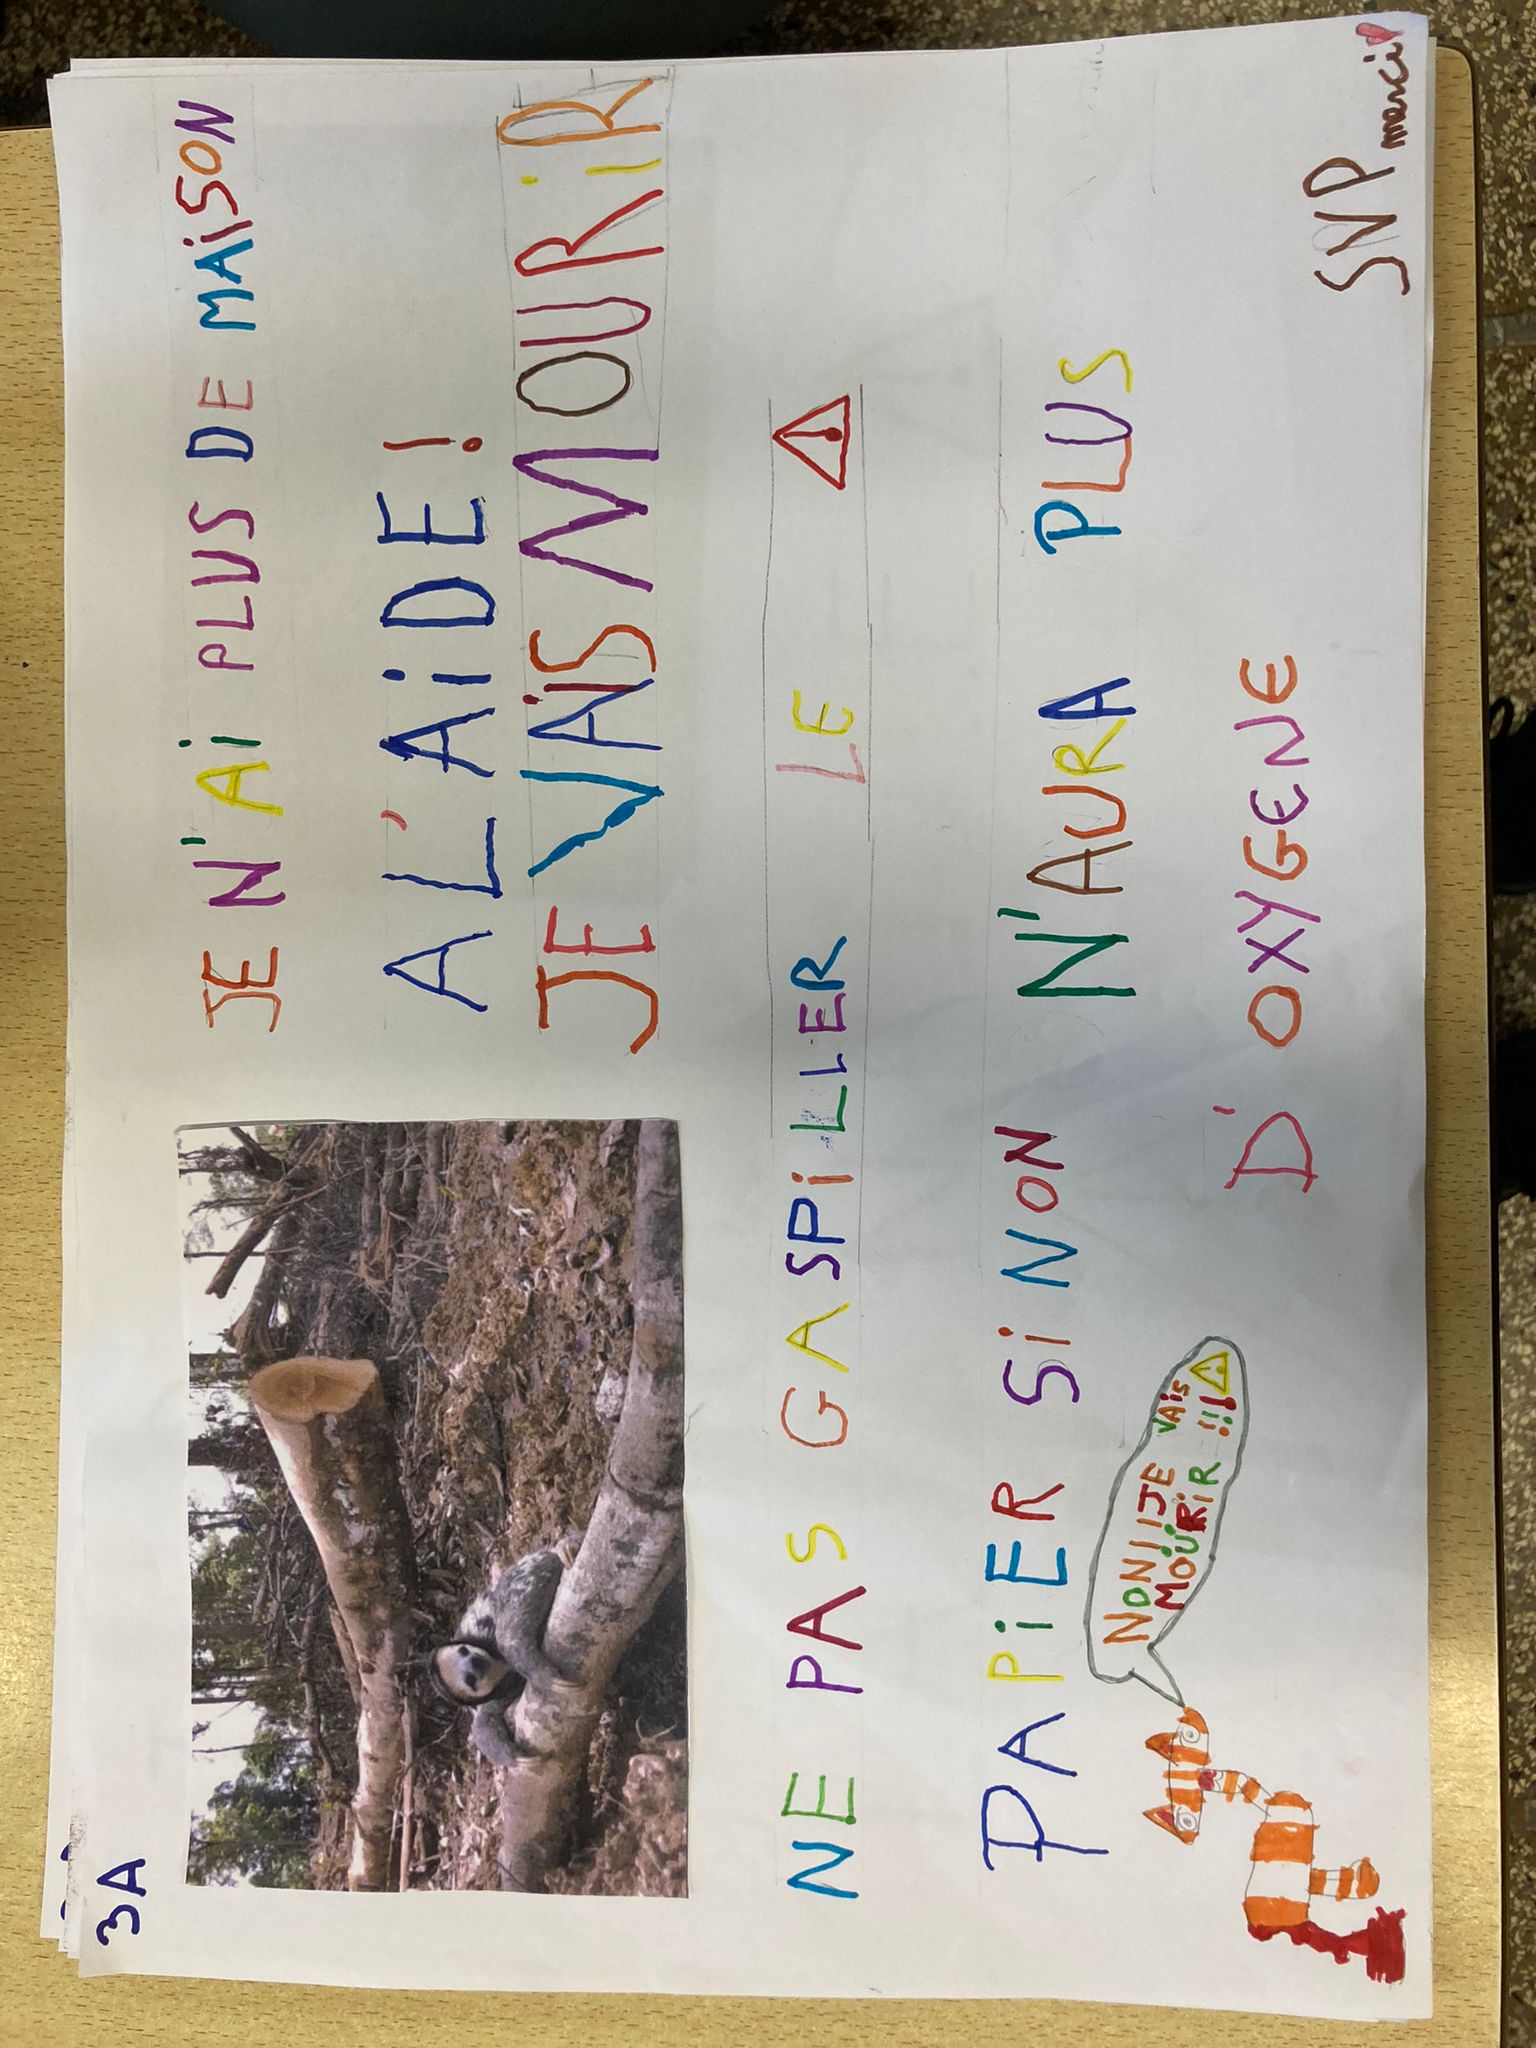 3A
JE N'Ai PLUS DE MAiSON
A L'AiDE !
JE VAiS MOURiR
NE PAS GASPiLLER LE
PAPiER SiNON N'AURA PLUS
NON!JE VAiS
MOURiR !!!
D'OXYGENE
SVP merci